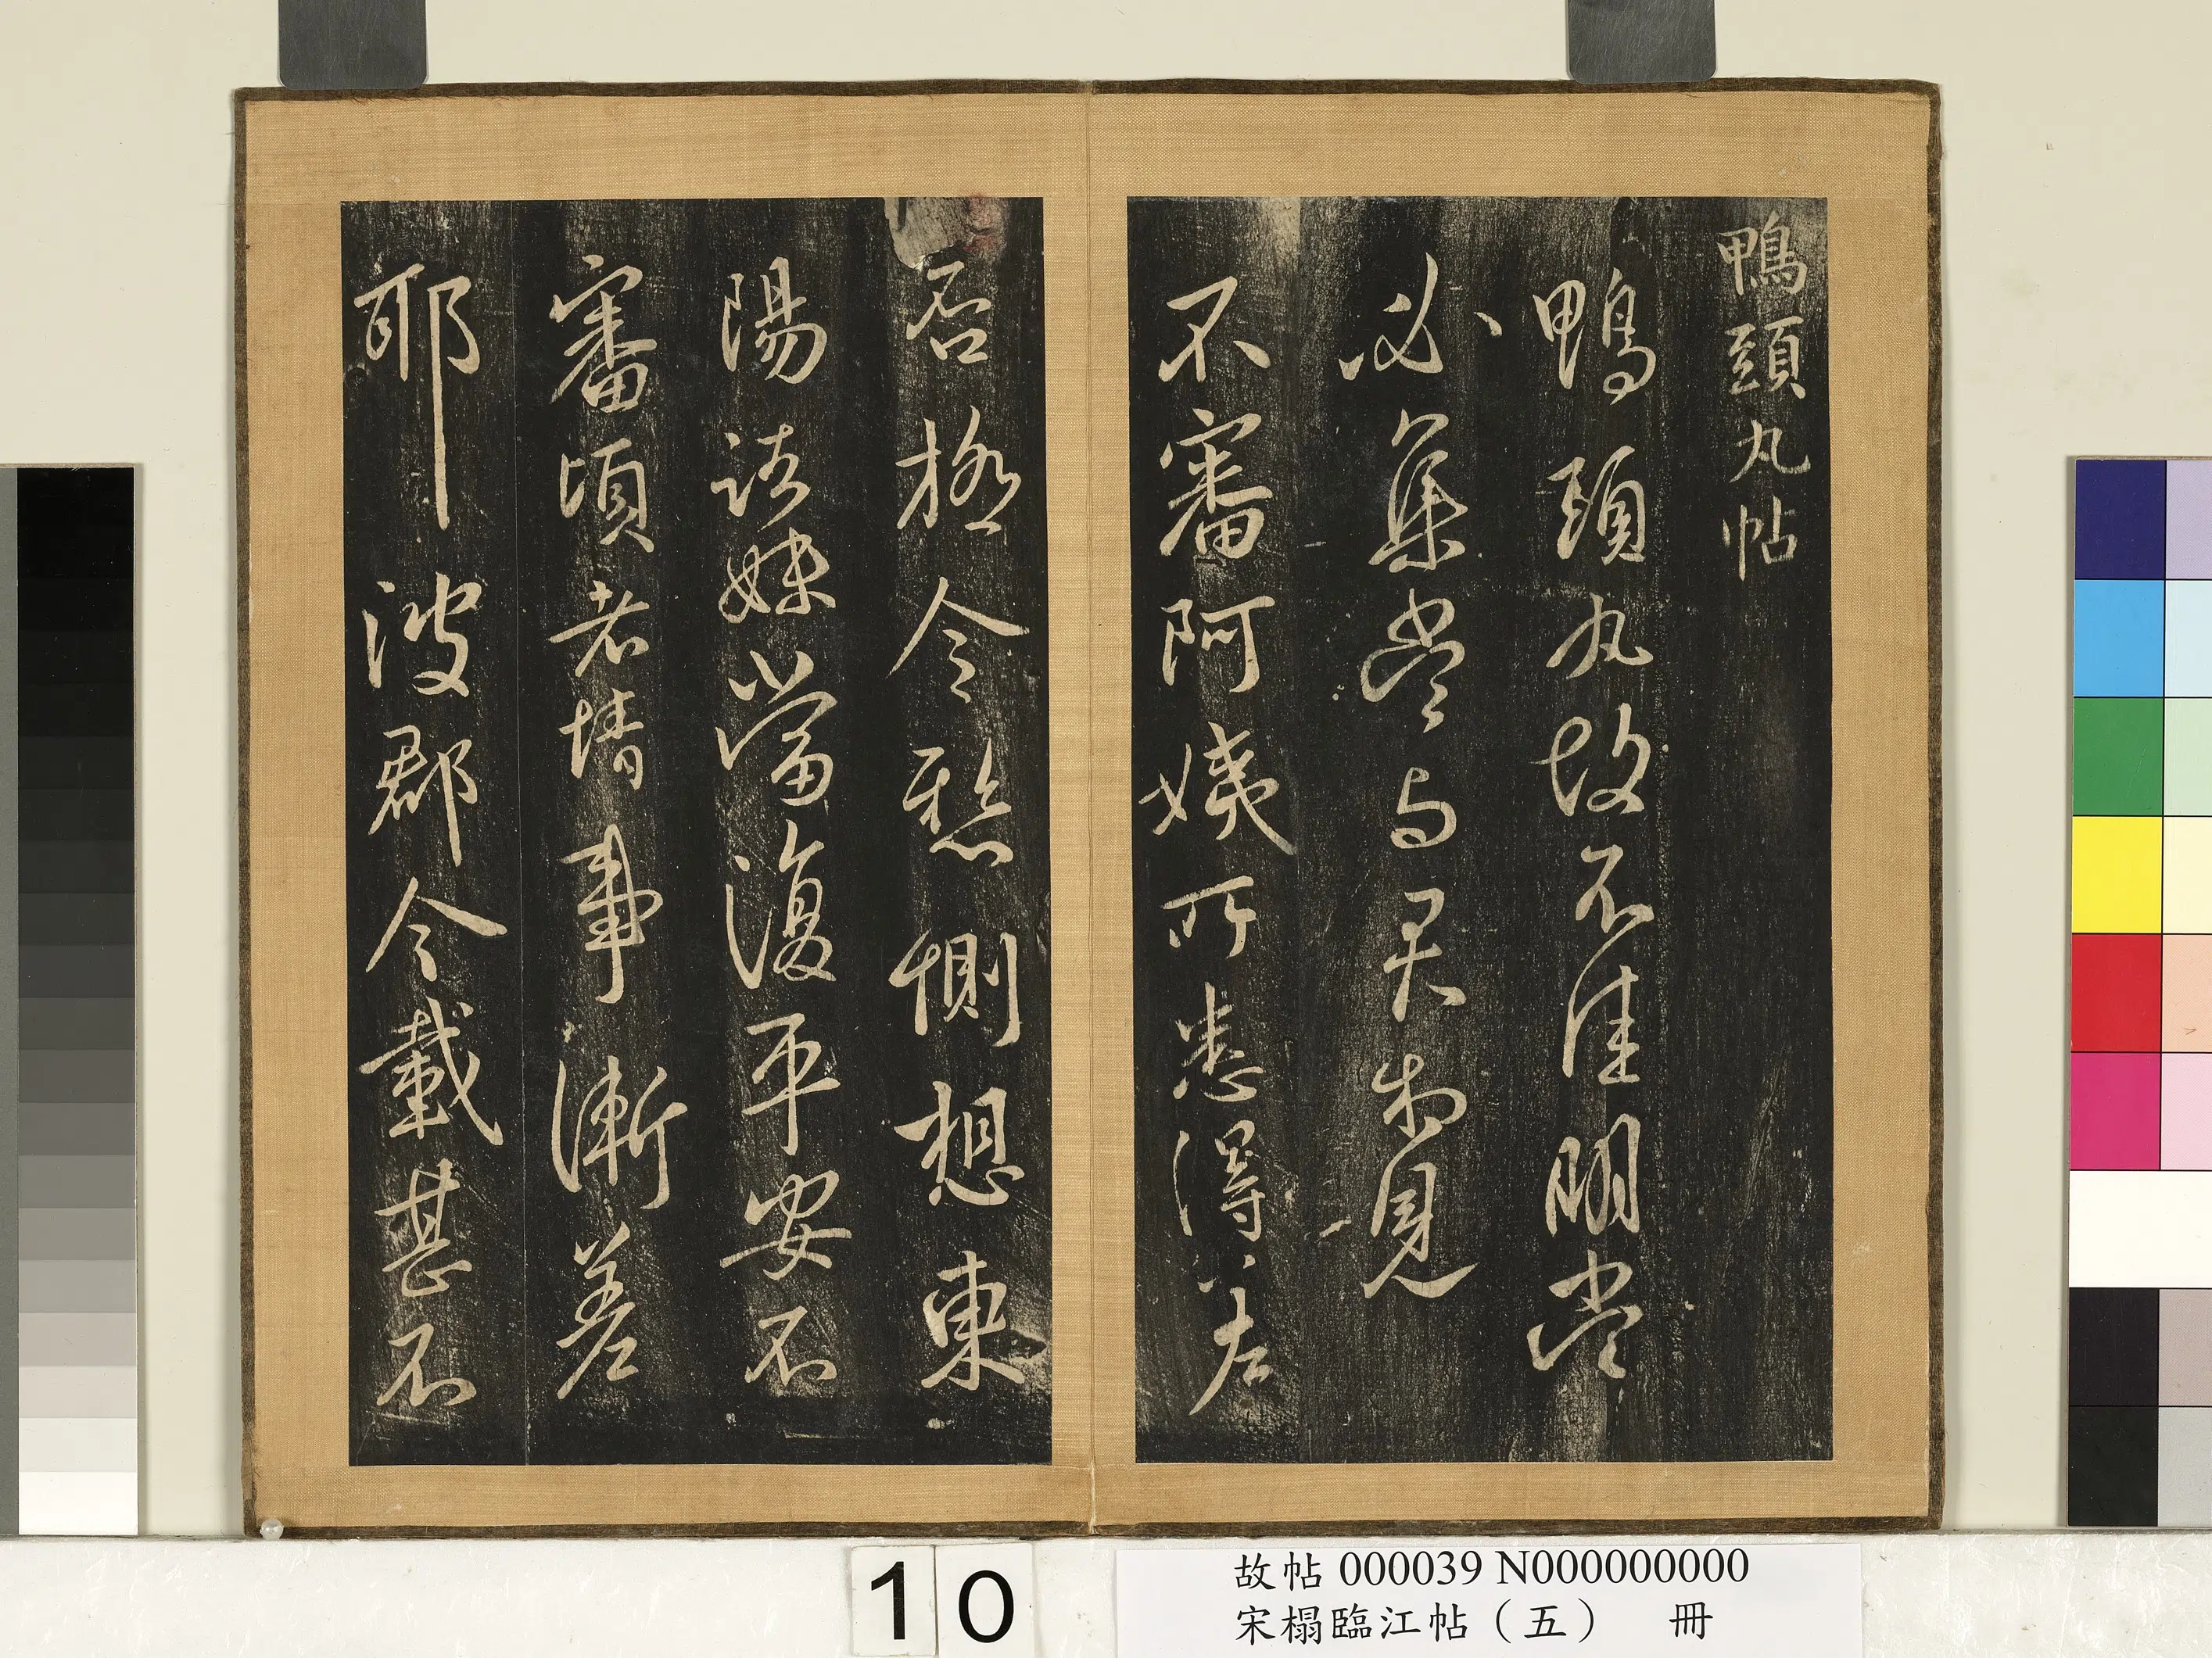 鴨頭丸帖
鴨頭丸故不佳明當
必集當与君相見
不審阿姨所患得差
否極令懸惻想東
陽諸妹當復平安不
審頃者情事漸差
耶彼郡今載甚不
10
故帖 000039 N000000000
宋榻臨江帖（五） 冊